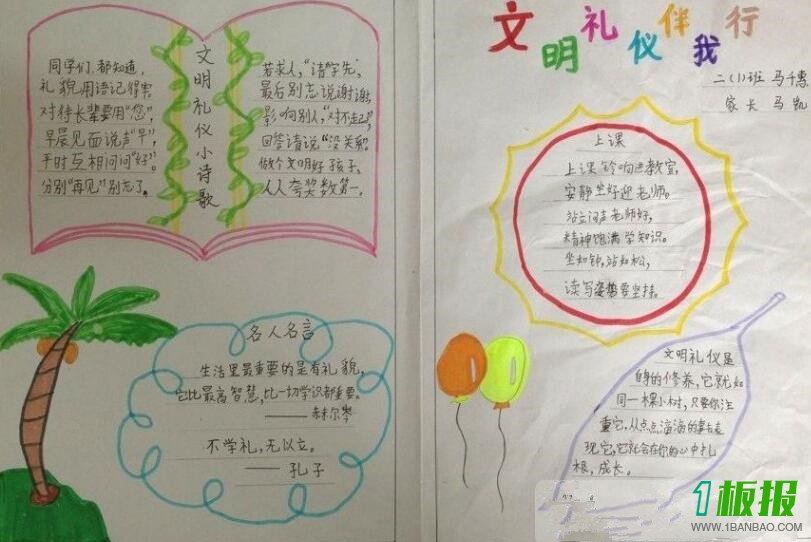 同学们,都知道,
礼貌用语记得害
对待长辈要用“您”,
早晨见面说声“早”,
平时互相问问“好”。
分别“再见”别忘了。
文明礼仪小诗歌
若求人,“请”字先,
最后别忘说谢谢,
影响别人,“对不起”,
回答请说“没关系”。
做个文明好孩子,
人人夸奖数第一。
名人名言
生活里最重要的是有礼貌,
它比最高智慧,比一切学识都重要。
——赫尔岑
不学礼,无以立。
——孔子
文明礼仪伴我行
二(1)班 马千惠
家长 马凯
上课
上课铃响进教室,
安静坐好迎老师。
站立问声老师好,
精神饱满学知识。
坐如钟,站如松,
读写姿势要坚持。
文明礼仪是
自身的修养,它就如
同一棵小树,只要你注
重它,从点点滴滴的事去表
现它,它就会在你的心中扎
根,成长。
1板报
WWW.1BANBAO.COM